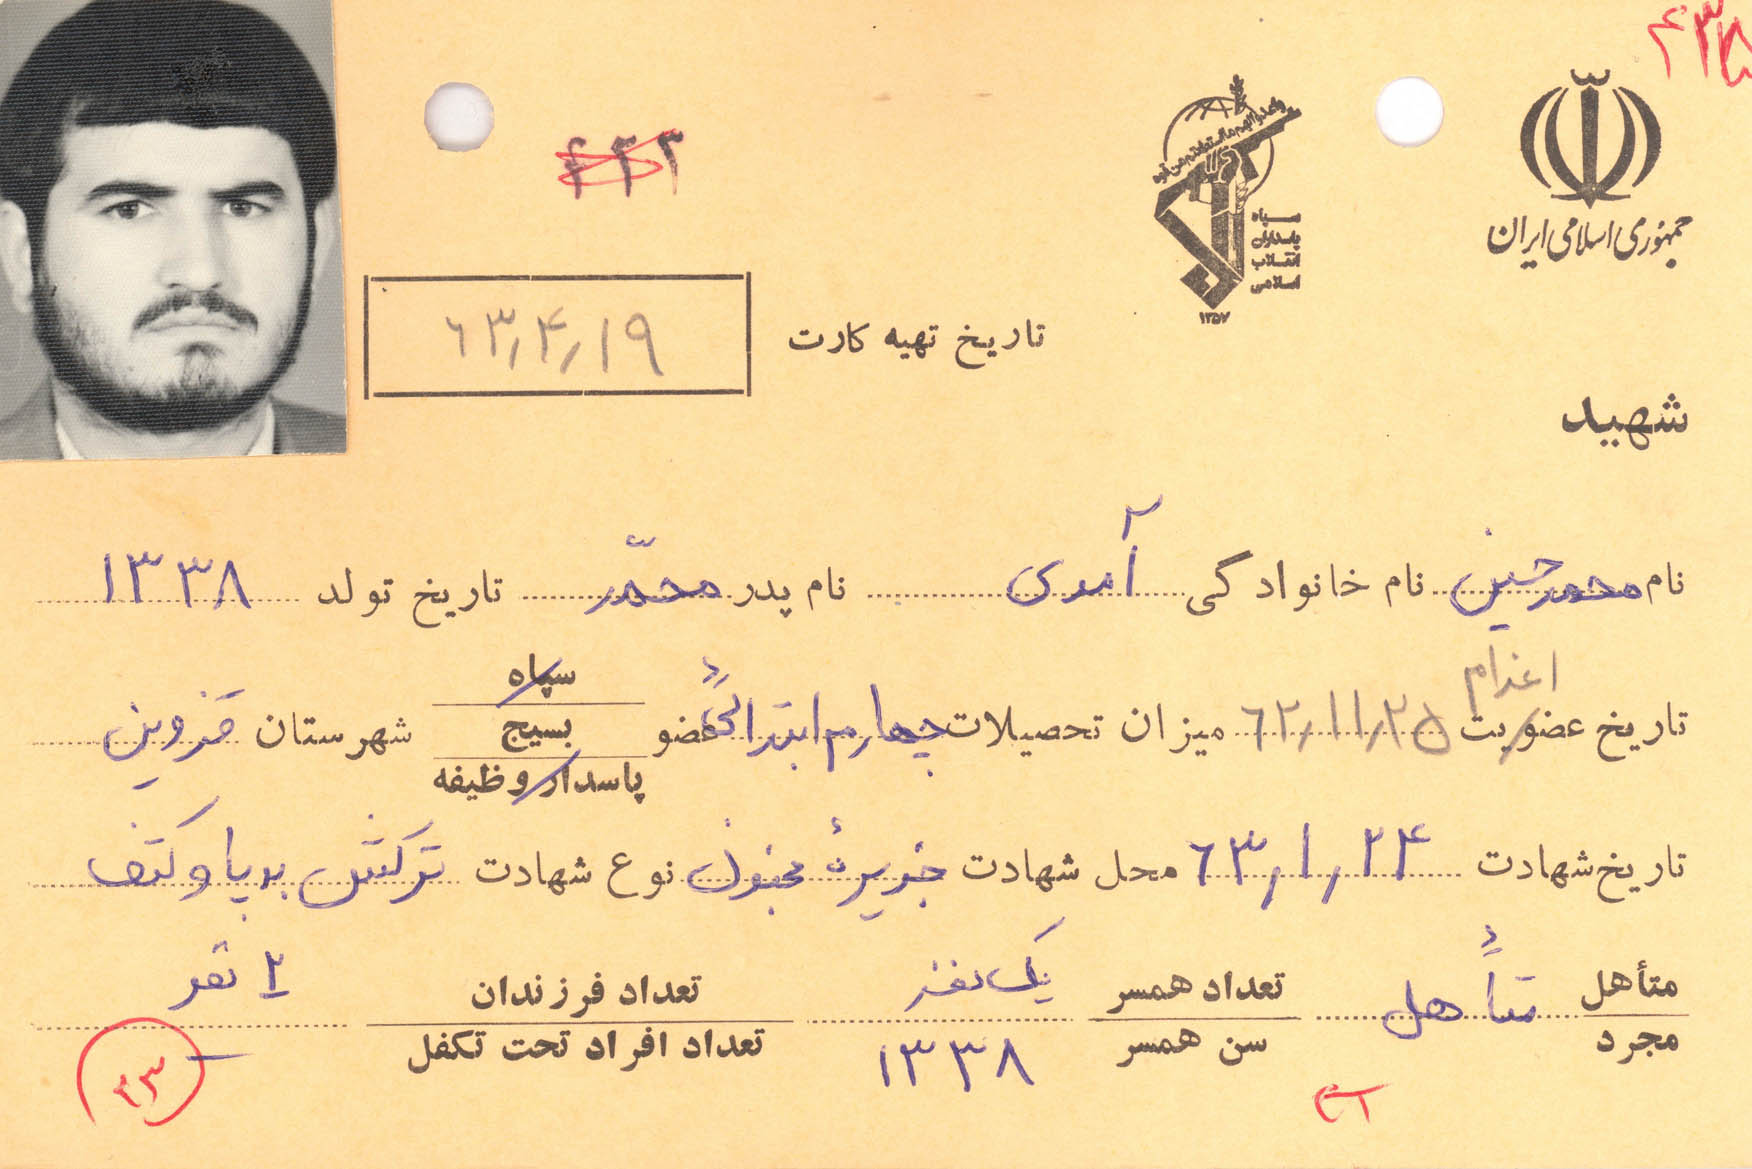 ۴۳۸
جمهوری اسلامی ایران
سپاه
پاسداران
انقلاب
اسلامی
۱۳۵۷
۴۳۳
تاریخ تهیه کارت ۶۳/۴/۱۹
شهید
نام محمدحسین نام خانوادگی آمدی نام پدر محمّد تاریخ تولد ۱۳۳۸
اعزام
تاریخ عضویت ۶۲/۱۱/۲۵ میزان تحصیلات چهارم ابتدائی عضو سپاه بسیج پاسدار وظیفه شهرستان قزوین
تاریخ شهادت ۶۳/۱/۲۴ محل شهادت جزیرهٔ مجنون نوع شهادت ترکش به پا و کتف
متأهل متأهل تعداد همسر یک نفر تعداد فرزندان ۲ نفر
مجرد سن همسر ۱۳۳۸ تعداد افراد تحت تکفل —
۲۳